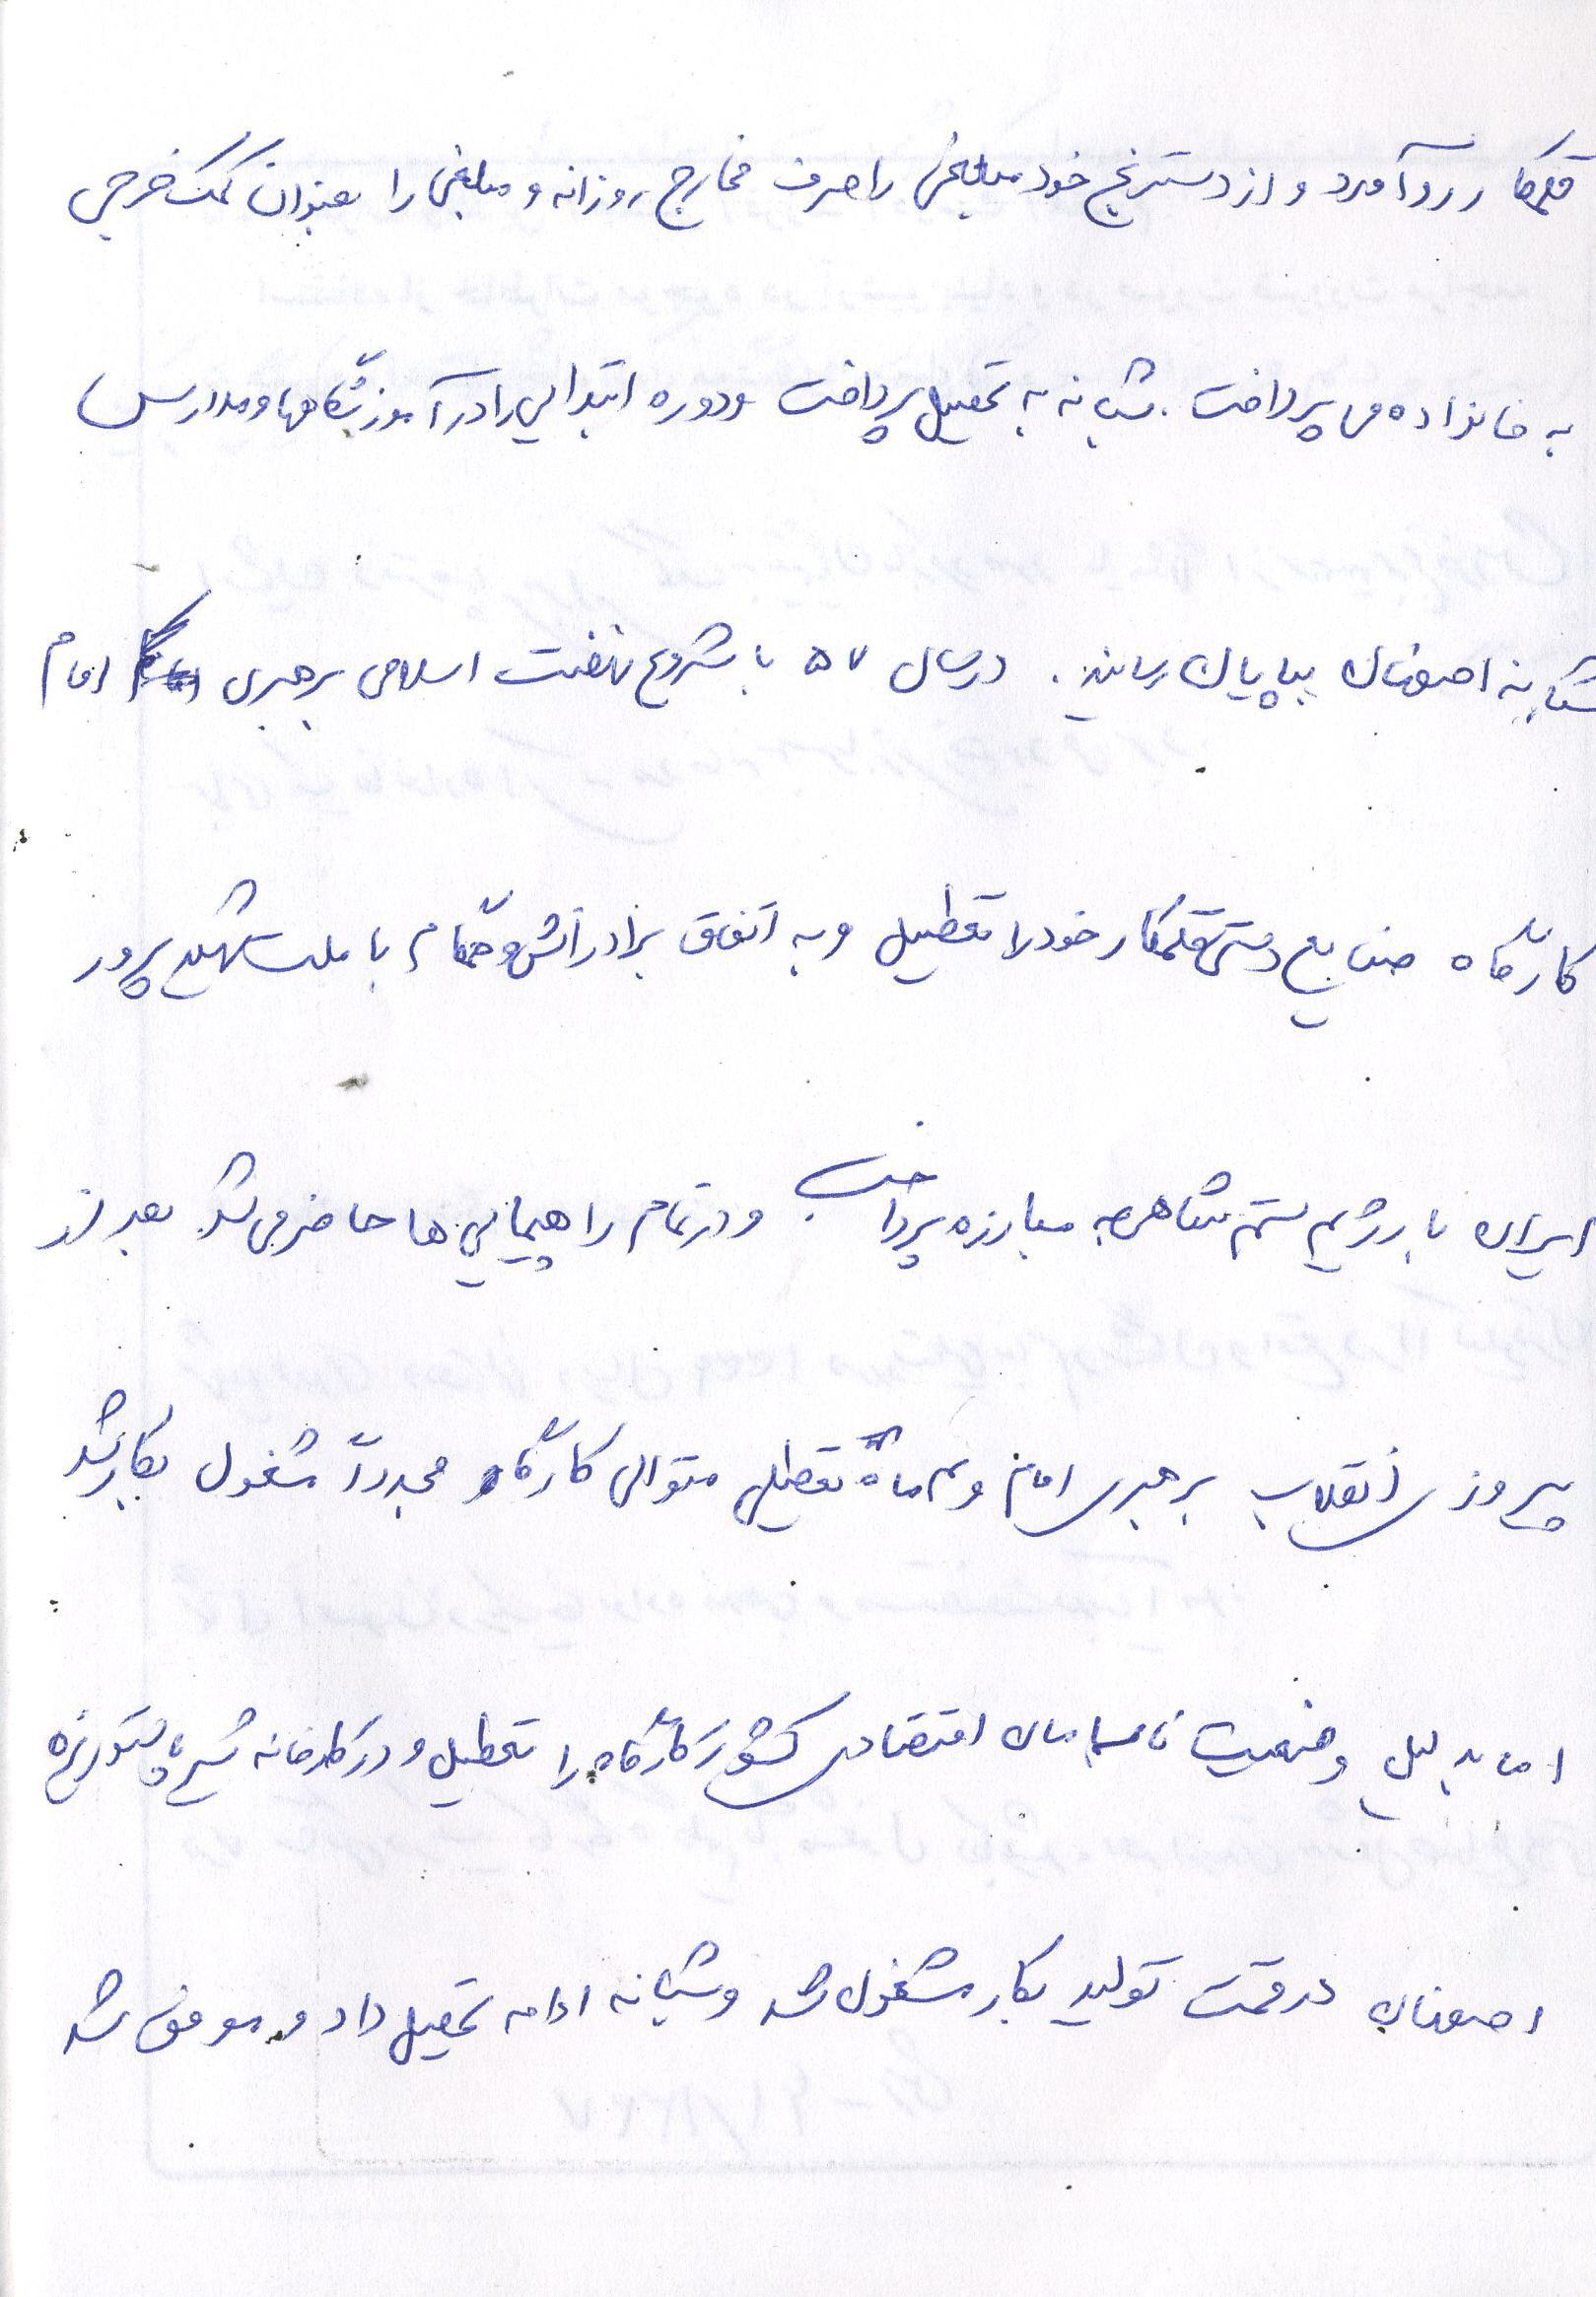 قلمکار روآورد و از دسترنج خود مبلغی را صرف مخارج روزانه و مبلغی را بعنوان کمک خرجی
به خانواده می پرداخت . شبانه به تحصیل پرداخت و دوره ابتدایی را در آموزشگاهها و مدارس
شبانه اصفهان بپایان رسانید . در سال ۵۷ با شروع نهضت اسلامی برهبری امام
کارگاه صنایع دستی قلمکار خود را تعطیل و به اتفاق برادرانش و همگام با ملت شهید پرور
ایران با رژیم ستم شاهی به مبارزه پرداخت و در تمام راهپیمایی ها حاضر می شد بعد از
پیروزی انقلاب برهبری امام و ماه تعطیلی متوالی کارگاه مجدداً مشغول بکار شد
اما بدلیل وضعیت نابسامان اقتصادی کشور کارگاه را تعطیل و در کارخانه شیر پاستوریزه
اصفهان در قسمت تولید بکار مشغول شد و شبانه ادامه تحصیل داد و موفق شد